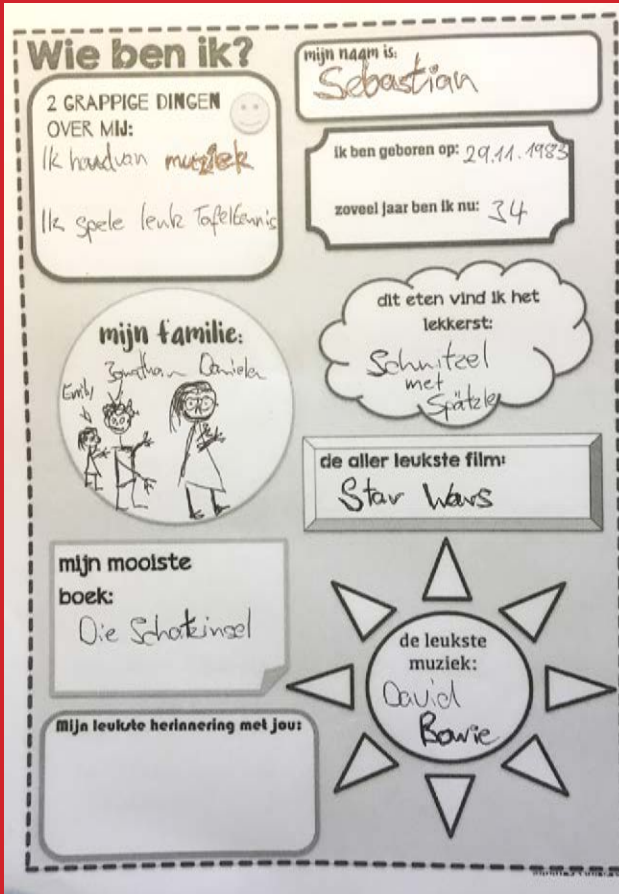 Wie ben ik?
mijn naam is:
Sebastian
2 GRAPPIGE DINGEN
OVER MIJ:
Ik houd van muziek
Ik spele leuk Tafeltennis
ik ben geboren op: 29.11.1983
zoveel jaar ben ik nu: 34
mijn familie:
Emily Jonathan Daniela
dit eten vind ik het
lekkerst:
Schnitzel
met
Spätzle
de aller leukste film:
Star Wars
mijn mooiste
boek:
Die Schatzinsel
de leukste
muziek:
David
Bowie
Mijn leukste herinnering met jou: